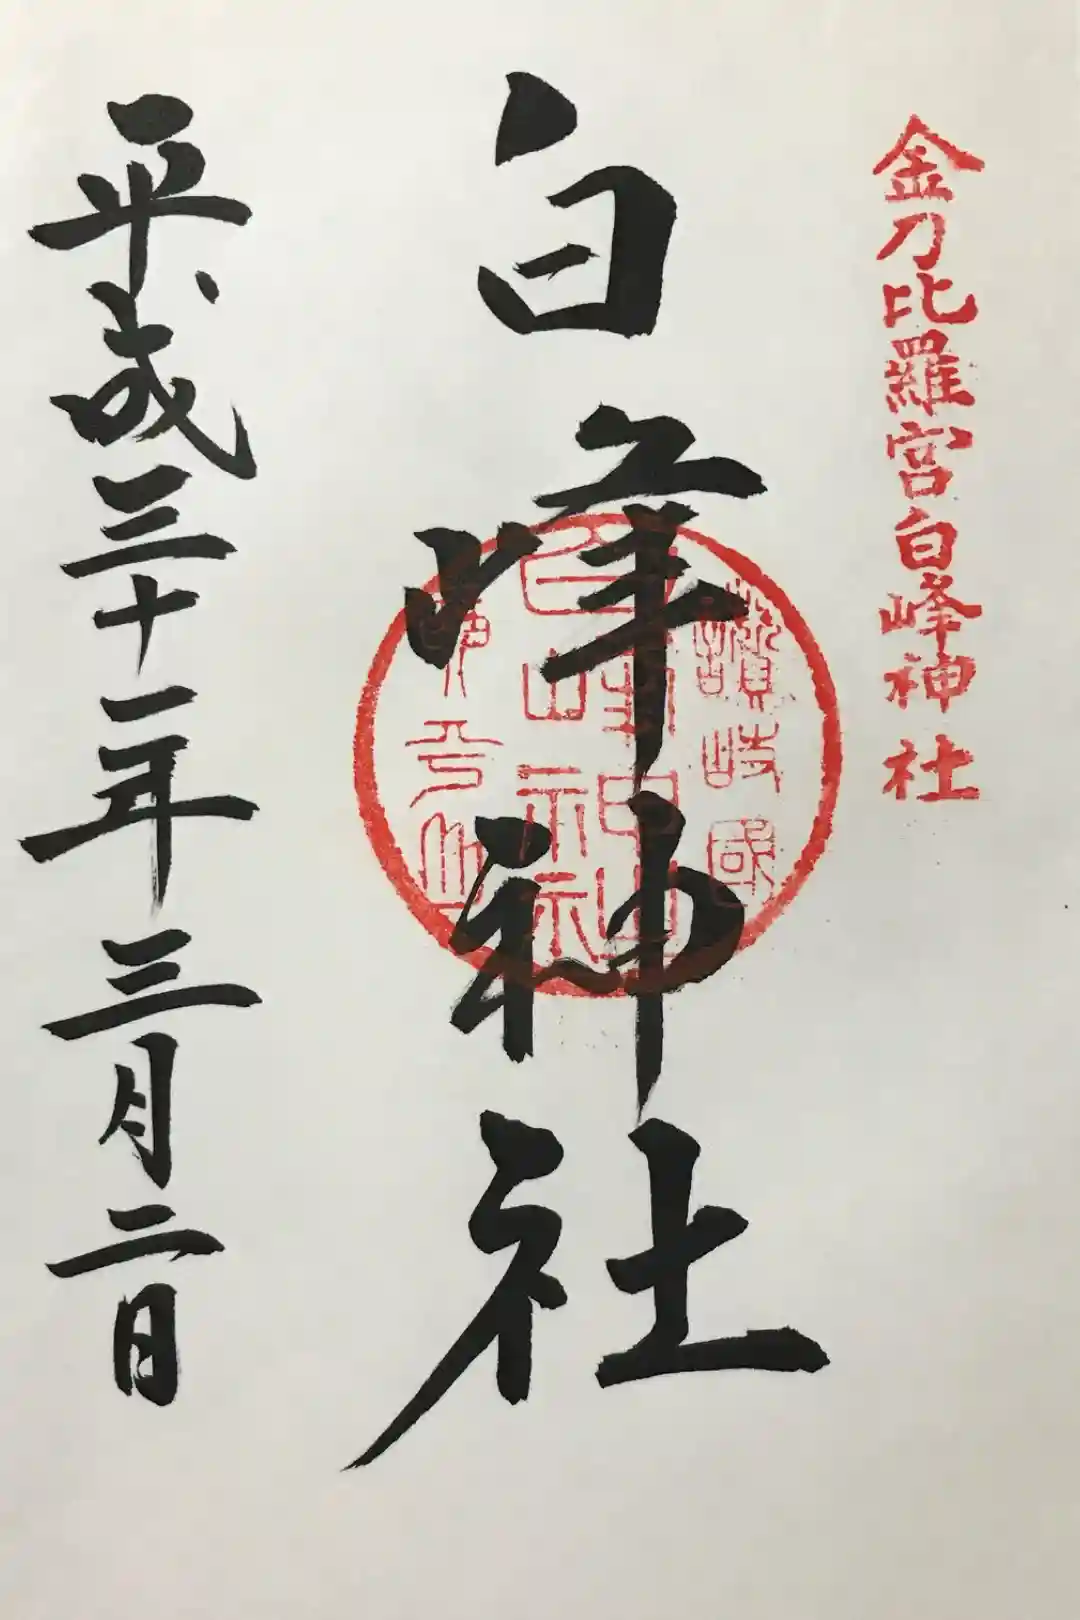 金刀比羅宮白峰神社
讃岐國
白峰神社
白峰神社
平成三十一年三月二日